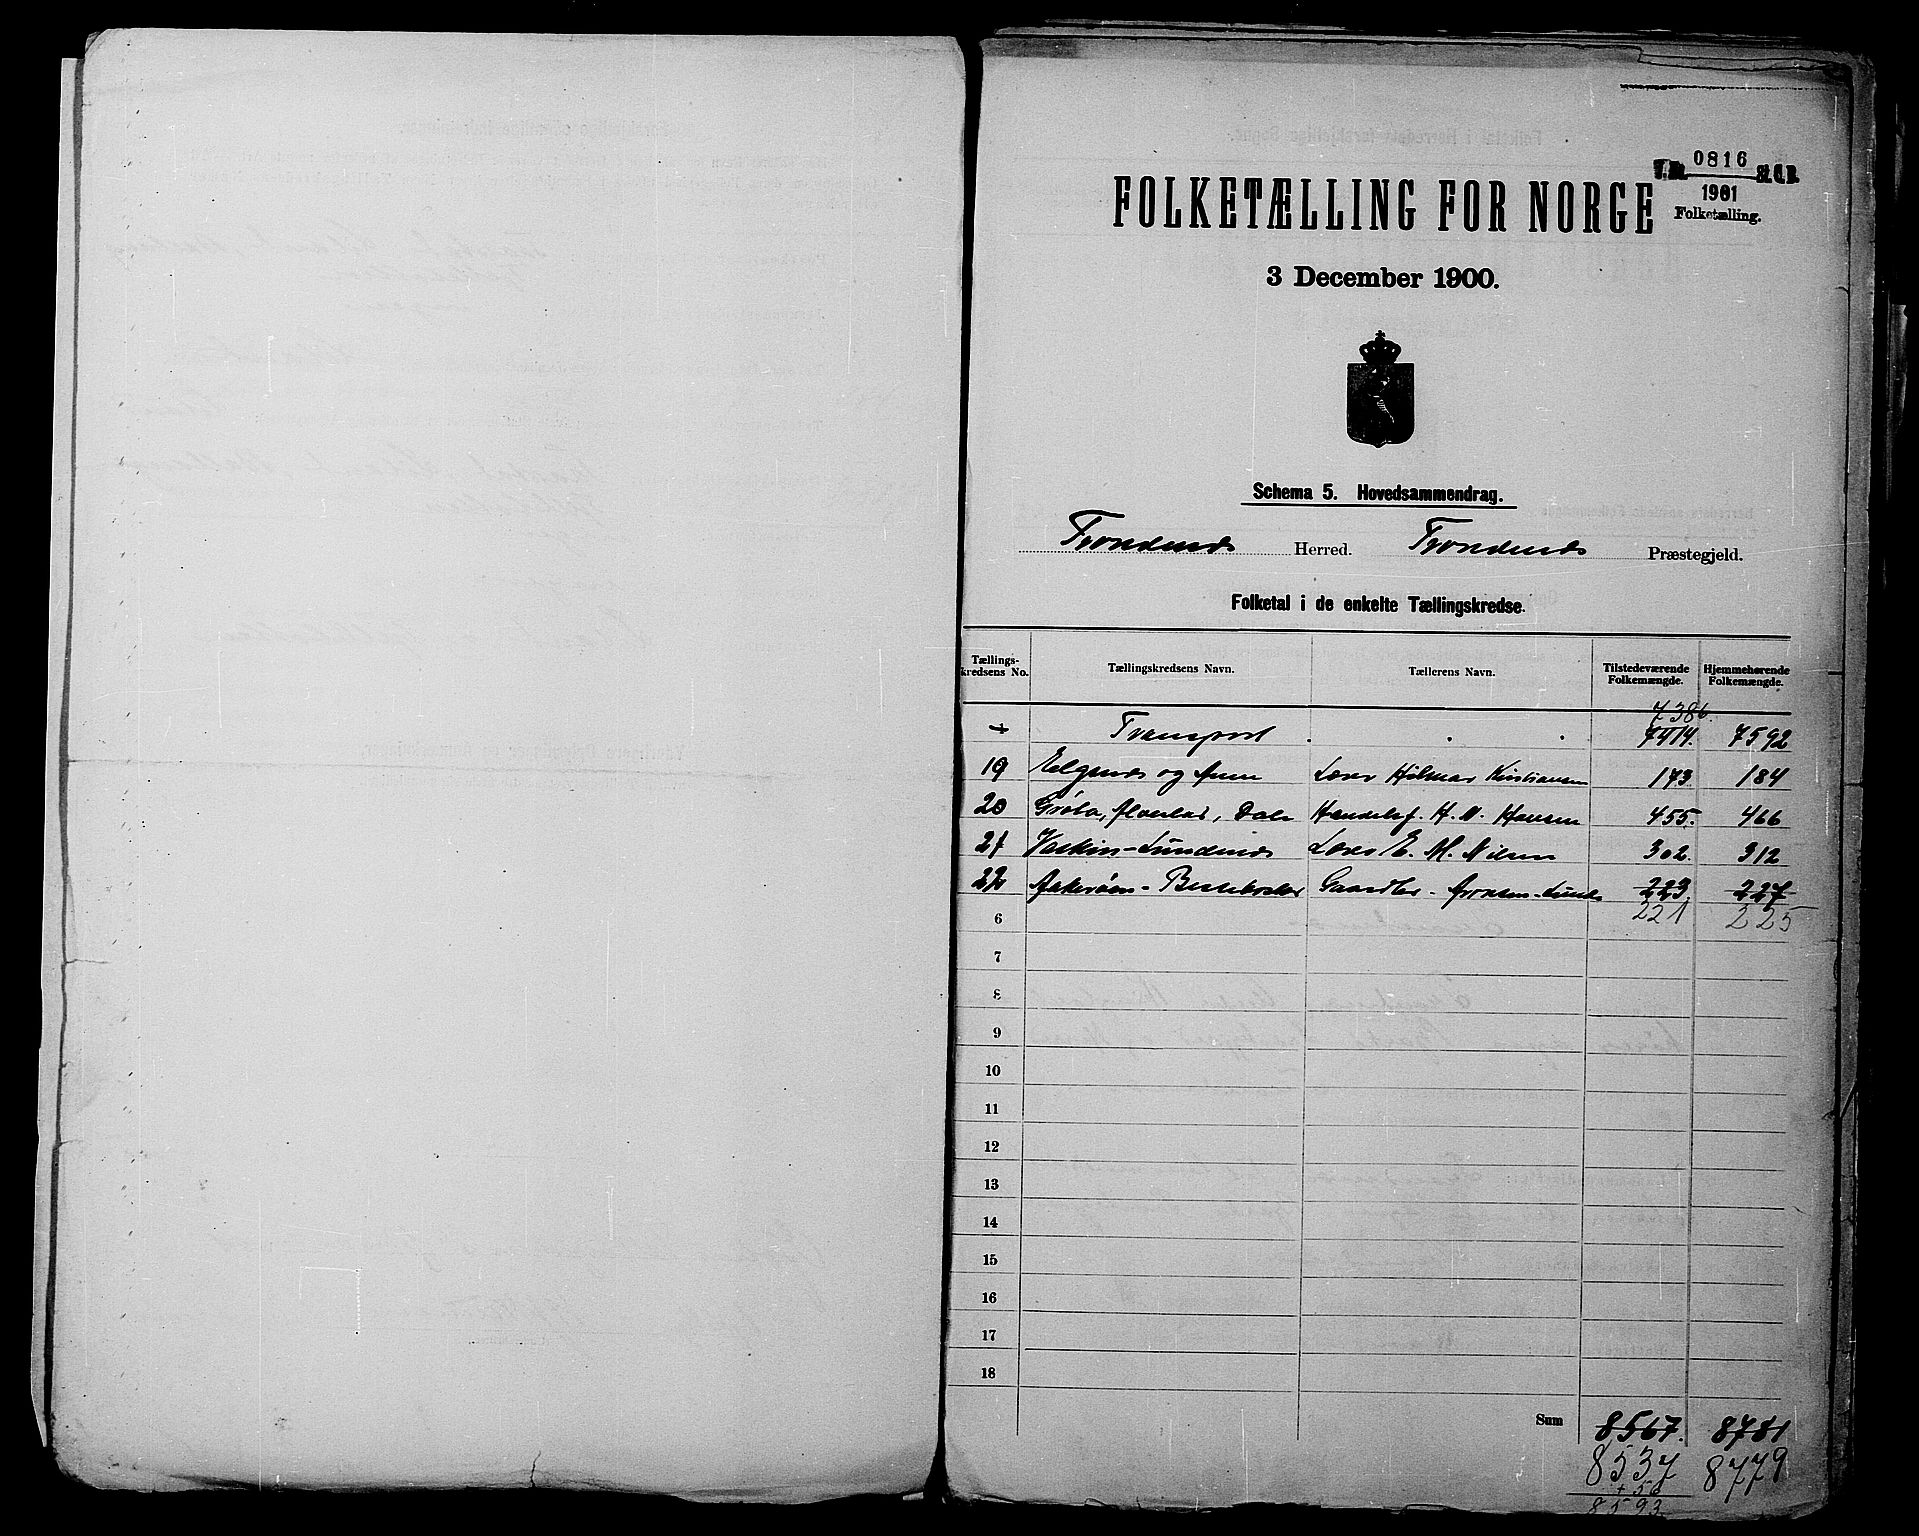 0816
1901
Folketælling.
FOLKETÆLLING FOR NORGE
3 December 1900.
Schema 5. Hovedsammendrag.
Trondenes Herred. Trondenes Præstegjeld.
Folketal i de enkelte Tællingskredse.
Tællings-kredsens No. Tællingskredsens Navn. Tællerens Navn. Tilstedeværende Folkemængde. Hjemmehørende Folkemængde.
7386.
Transport . . . 7414. 7592
19 Elgenes og Aun Lærer Hilmar Kristiansen 173. 184
20 Grøbo, , Dale Handelsf. H. M. Hansen 455. 466
21 - Lundenes Lærer E. M. Nilsen 302. 312
22 - Gaardbr. 223 227
6 221 225
7
8
9
10
11
12
13
14
15
16
17
18
Sum 8567. 8781
8537 8779
+ 56
8593